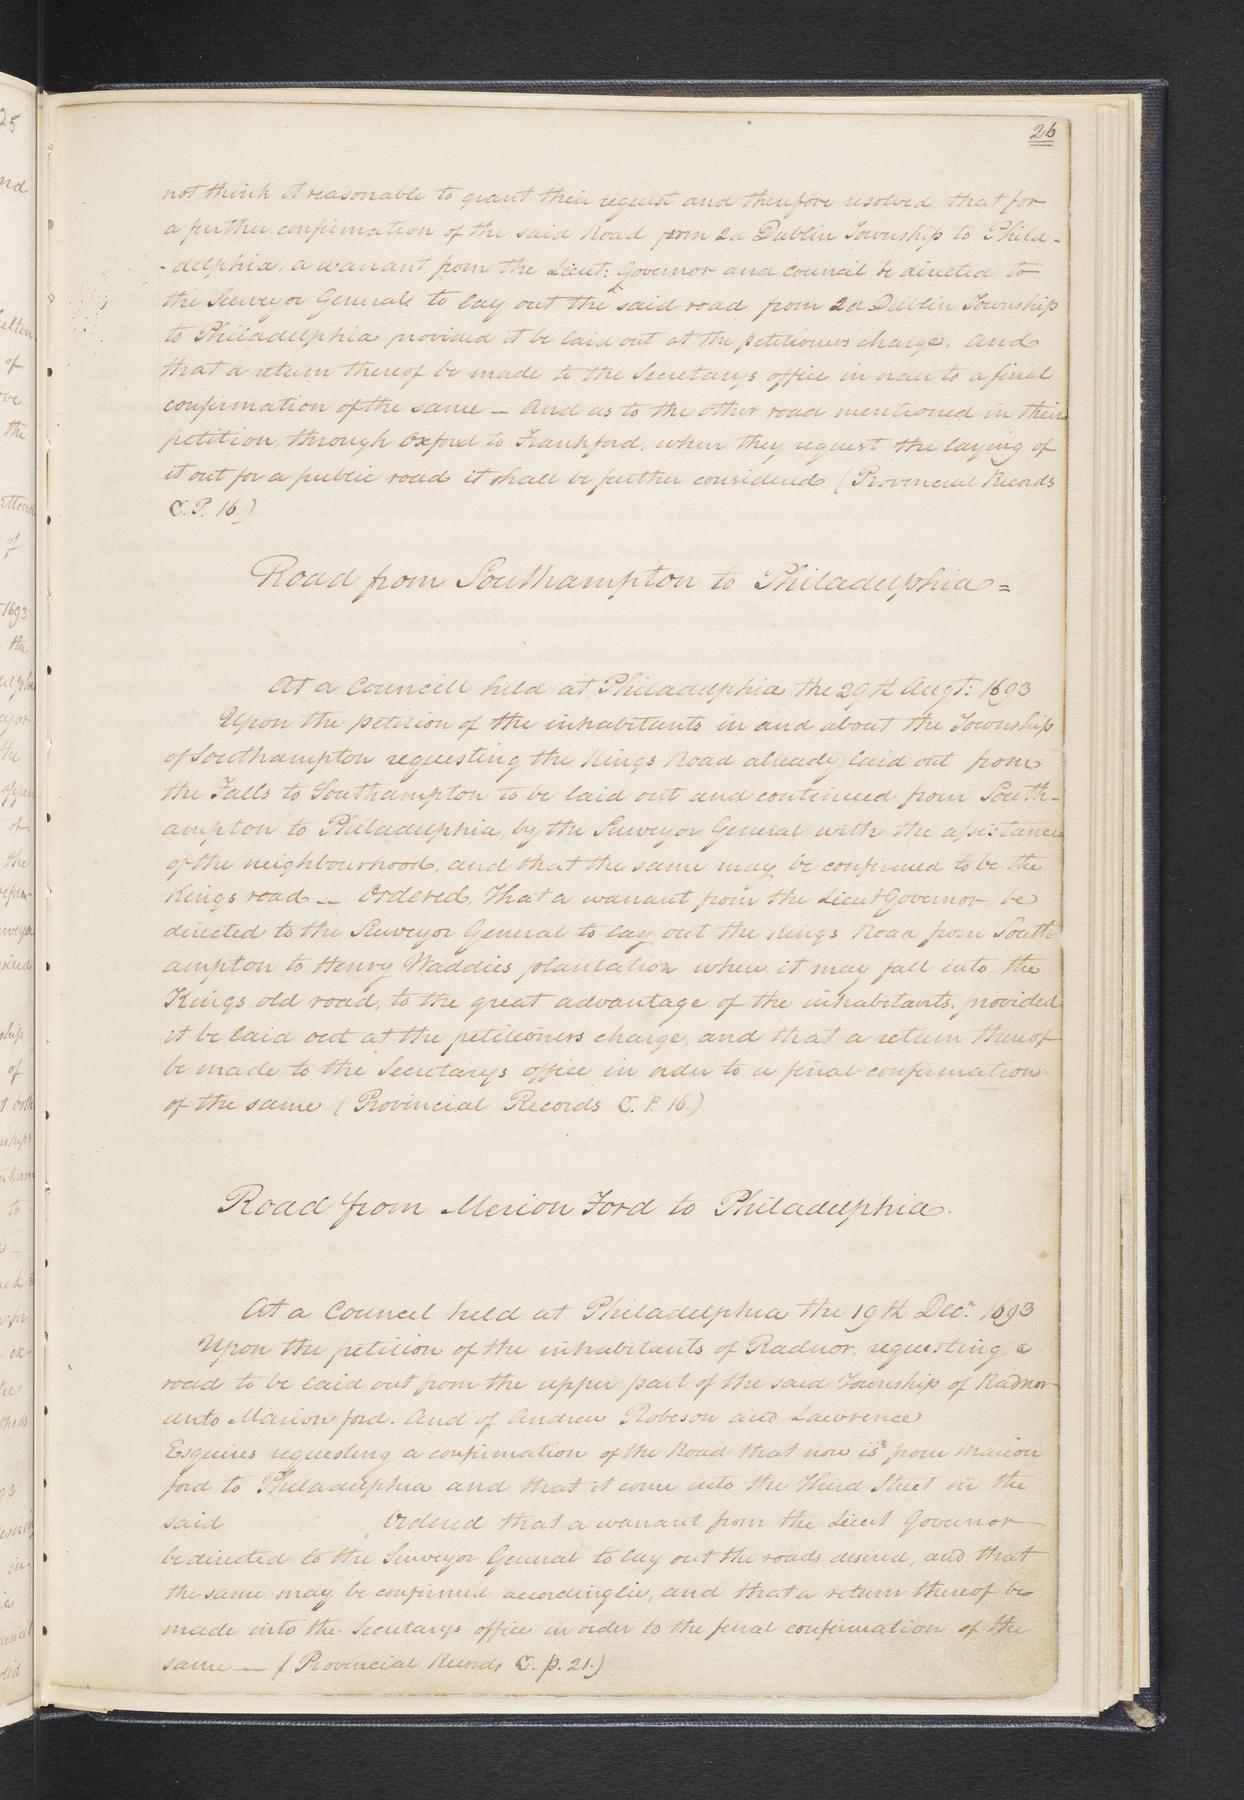 26
not think it reasonable to grant their request and therefore resolved that for
a further confirmation of the said Road from 2d Dublin Township to Phila-
-delphia. a warrant from the Lieut: Governor and council be directed to
the Surveyor Generals to lay out the said road from 2d Dublin Township
to Philadelphia provided it be laid out at the petitioners charge. And
that a return thereof be made to the Secretarys office in order to a final
confirmation of the same — And as to the other road mentioned in their
petition, through Oxford to Frankford, when they request the laying of
it out for a public road it shall be further considered (Provincial Records
C. P. 16)
Road from Southampton to Philadelphia =
At a Councill held at Philadelphia the 29th Augt: 1693
Upon the petition of the inhabitants in and about the Township
of Southampton requesting the Kings Road already laid out from
the Falls to Southampton to be laid out and continued from South-
ampton to Philadelphia by the Surveyor General with the assistance
of the neighbourhood, and that the same may be confirmed to be the
Kings road — Ordered, That a warrant from the Lieut Governor be
directed to the Surveyor General to lay out the Kings Road from South
ampton to Henry Waddies plantation when it may fall into the
Kings old road, to the great advantage of the inhabitants, provided
it be laid out at the petitioners charge, and that a return thereof
be made to the Secretarys office in order to a final confirmation
of the same (Provincial Records C. P. 16)
Road from Merion Ford to Philadelphia.
At a Council held at Philadelphia the 19th Decr. 1693
Upon the petition of the inhabitants of Radnor, requesting a
road to be laid out from the upper part of the said Township of Radnor
unto Marion ford. And of Andrew Robeson and Lawrence
Esquires requesting a confirmation of the Road that now is from Marion
ford to Philadelphia and that it come into the Third Street in the
said Ordered that a warrant from the Lieut Governor
be directed to the Surveyor General to lay out the roads desired, and that
the same may be confirmed accordinglie, and that a return thereof be
made into the Secretarys office in order to the final confirmation of the
same — (Provincial Records C. p. 21.)